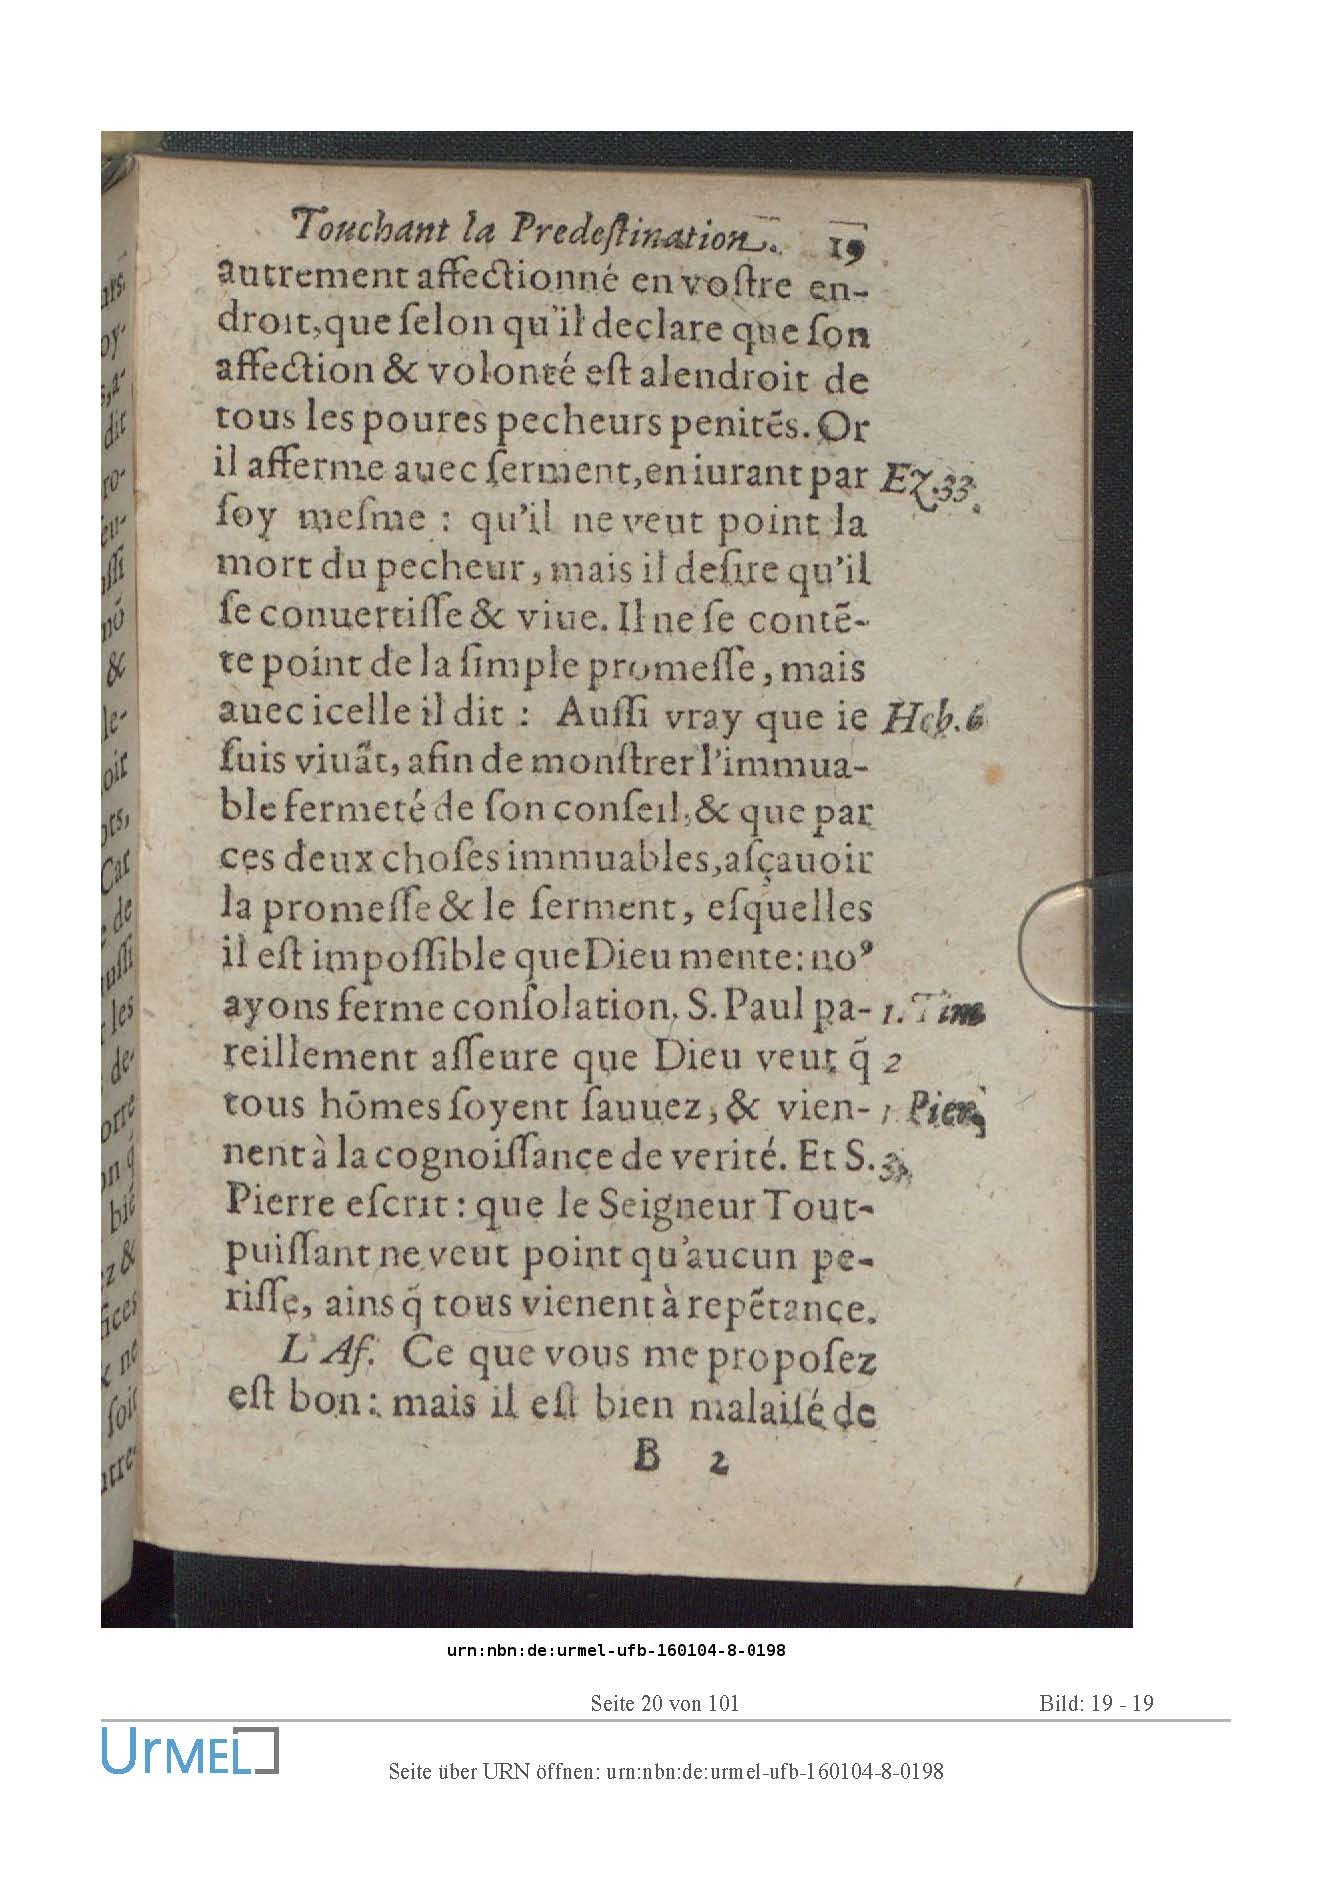 Touchant la Predeſtination. 19
autrement affectionné en voſtre en-
droit, que ſelon qu'il declare que ſon
affection & volonté eſt alendroit de
tous les poures pecheurs penitẽs. Or
il afferme auec ſerment, en iurant par Ez. 33.
ſoy meſme : qu'il ne veut point la
mort du pecheur, mais il deſire qu'il
ſe conuertiſſe & viue. Il ne ſe contẽ-
te point de la ſimple promeſſe, mais
auec icelle il dit : Auſſi vray que ie Heb. 6
ſuis viuãt, afin de monſtrer l'immua-
ble fermeté de ſon conſeil, & que par
ces deux choſes immuables, aſçauoir
la promeſſe & le ſerment, eſquelles
il eſt impoſſible que Dieu mente: noꝰ
ayons ferme conſolation. S. Paul pa- 1. Tim
reillement aſſeure que Dieu veut q̃ 2
tous hõmes ſoyent ſauuez, & vien- 1 Pier.
nent à la cognoiſſance de verité. Et S. 3.
Pierre eſcrit : que le Seigneur Tout-
puiſſant ne veut point qu'aucun pe-
riſſe, ains q̃ tous vienent à repẽtance.
L'Af. Ce que vous me propoſez
eſt bon : mais il eſt bien malaiſé de
B 2
urn:nbn:de:urmel-ufb-160104-8-0198
Seite 20 von 101 Bild: 19 - 19
UrMEL
Seite über URN öffnen: urn:nbn:de:urmel-ufb-160104-8-0198